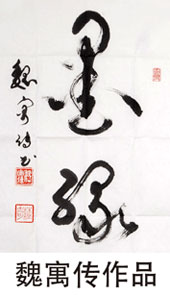 墨緣
魏寓传书
魏寓传作品